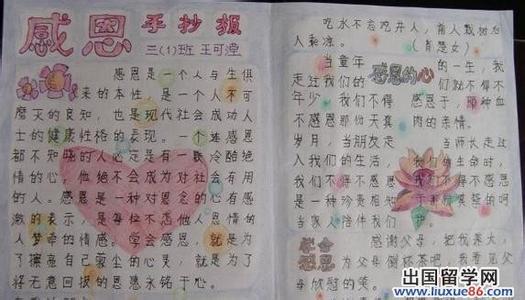 感恩 手抄报
三(1)班 王可
感恩是一个人与生俱
来的本性,是一个人不可
磨灭的良知,也是现代社会成功人
士的健康性格的表现。一个连感恩
都不知晓的人必定是有一颗冷酷绝
情的心。他绝不会成为对社会有用
的人。感恩是一种对恩的心有感
激的表示,是每位不忘他人恩情的
人梦牵的情感。学会感恩,就是为
了擦亮自己蒙尘的心灵,就是为了
将无意回报的恩惠永铭于心。
吃水不忘吃井人,前人栽树后
人乘凉。
感恩的心
当童年的一生,我
走过我们的们就不得不
年少我们不得感恩于,那种血
不感恩那份天真肉的亲情。
岁月,当朋友走当师长走过
入我们的生活,我们的生命时,
我们不得不感恩我们不得不感恩
是一种珍贵相的呵
当家人陪伴我们
学会感恩
感谢父母,把我养大,
为父母倒杯茶吧,
母欣慰的笑。
出国留学网
www.liuxue86.com